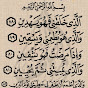 بسم الله الرحمن الرحيم
الَّذِي خَلَقَنِي فَهُوَ يَهْدِينِ
وَالَّذِي هُوَ يُطْعِمُنِي وَيَسْقِينِ
وَإِذَا مَرِضْتُ فَهُوَ يَشْفِينِ
وَالَّذِي يُمِيتُنِي ثُمَّ يُحْيِينِ